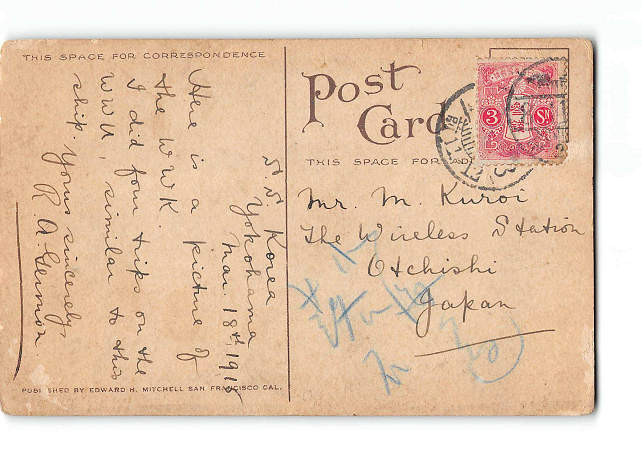 THIS SPACE FOR CORRESPONDENCE
S S Korea
Yokohama
Mar. 18th, 191
Here is a picture of
the W W K.
I did four trips on the
W W U, similar to this
ship. Yours sincerely,
R. A. Germon.
PUBLISHED BY EDWARD H. MITCHELL SAN FRANCISCO CAL.
Post
Card
THIS SPACE FOR AD
3 Sn
Mr. M. Kuroi
The Wireless Station
Otchishi
Japan